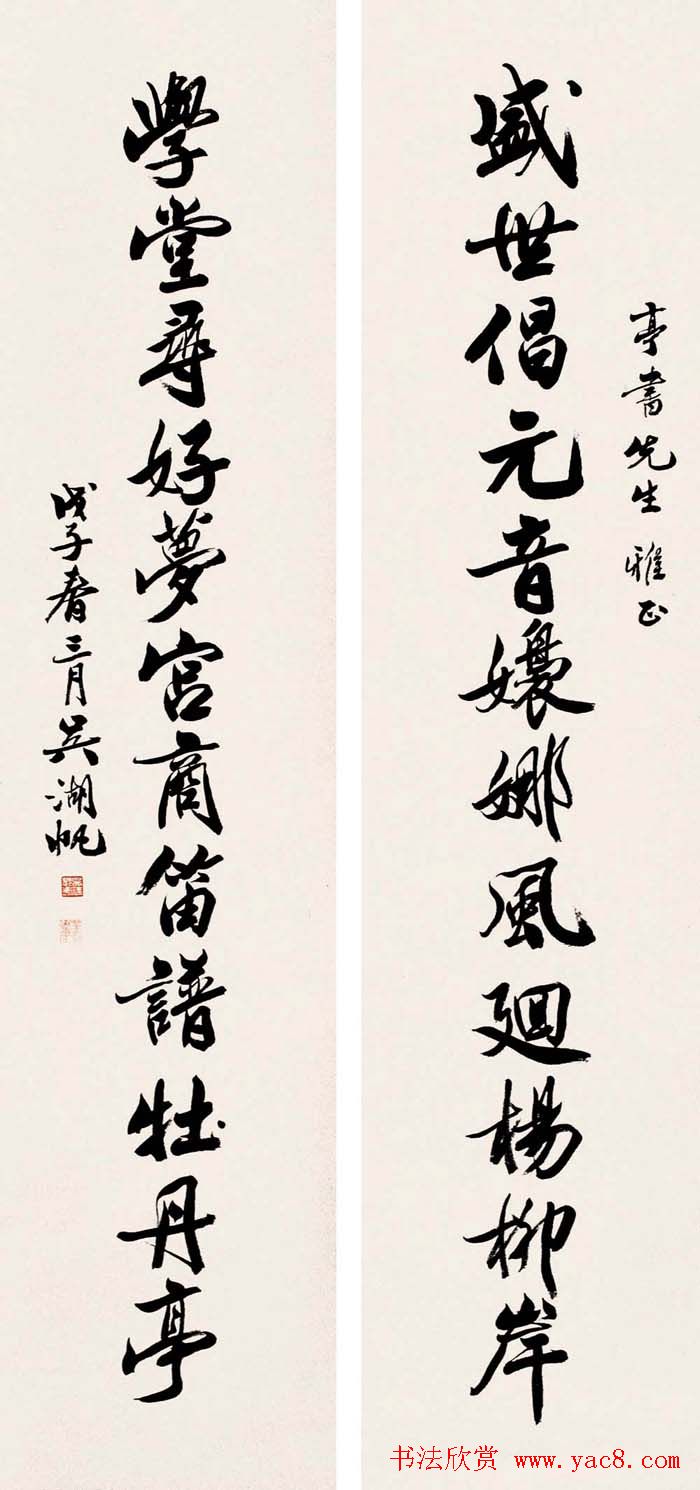 亭書先生 雅正
盛世倡元音嬝娜風廻楊柳岸
學堂尋好夢宮商笛譜牡丹亭
戊子春三月吳湖帆
书法欣赏 www.yac8.com